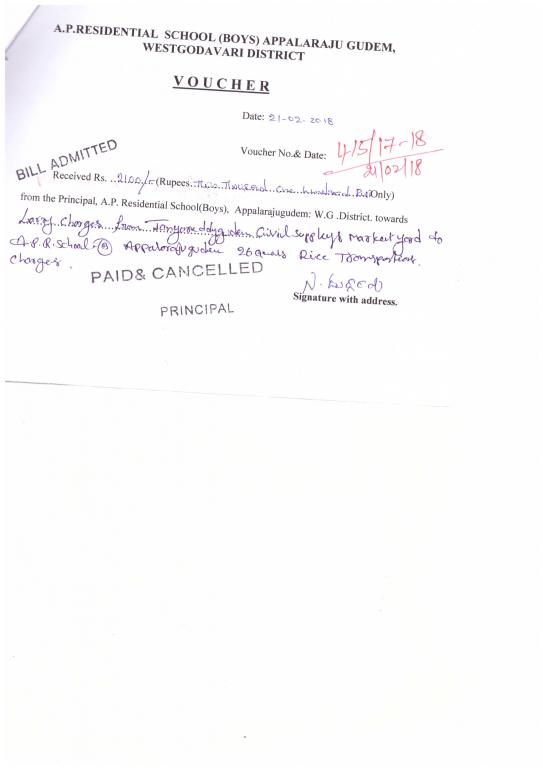 A.P.RESIDENTIAL SCHOOL (BOYS) APPALARAJU GUDEM,
WESTGODAVARI DISTRICT
VOUCHER
Date: 21-02-2018
Voucher No.& Date: 415/17-18
21/02/18
BILL ADMITTED
Received Rs. ..2100/-(Rupees..Two Thousand one hundred Only)
from the Principal, A.P. Residential School(Boys), Appalarajugudem: W.G .District. towards
Larry Charges from Civil supplys market yard to
A.P.R. School (B) Appalarajugudem 26 Rice Transportion.
charges.
PAID& CANCELLED
Signature with address.
PRINCIPAL